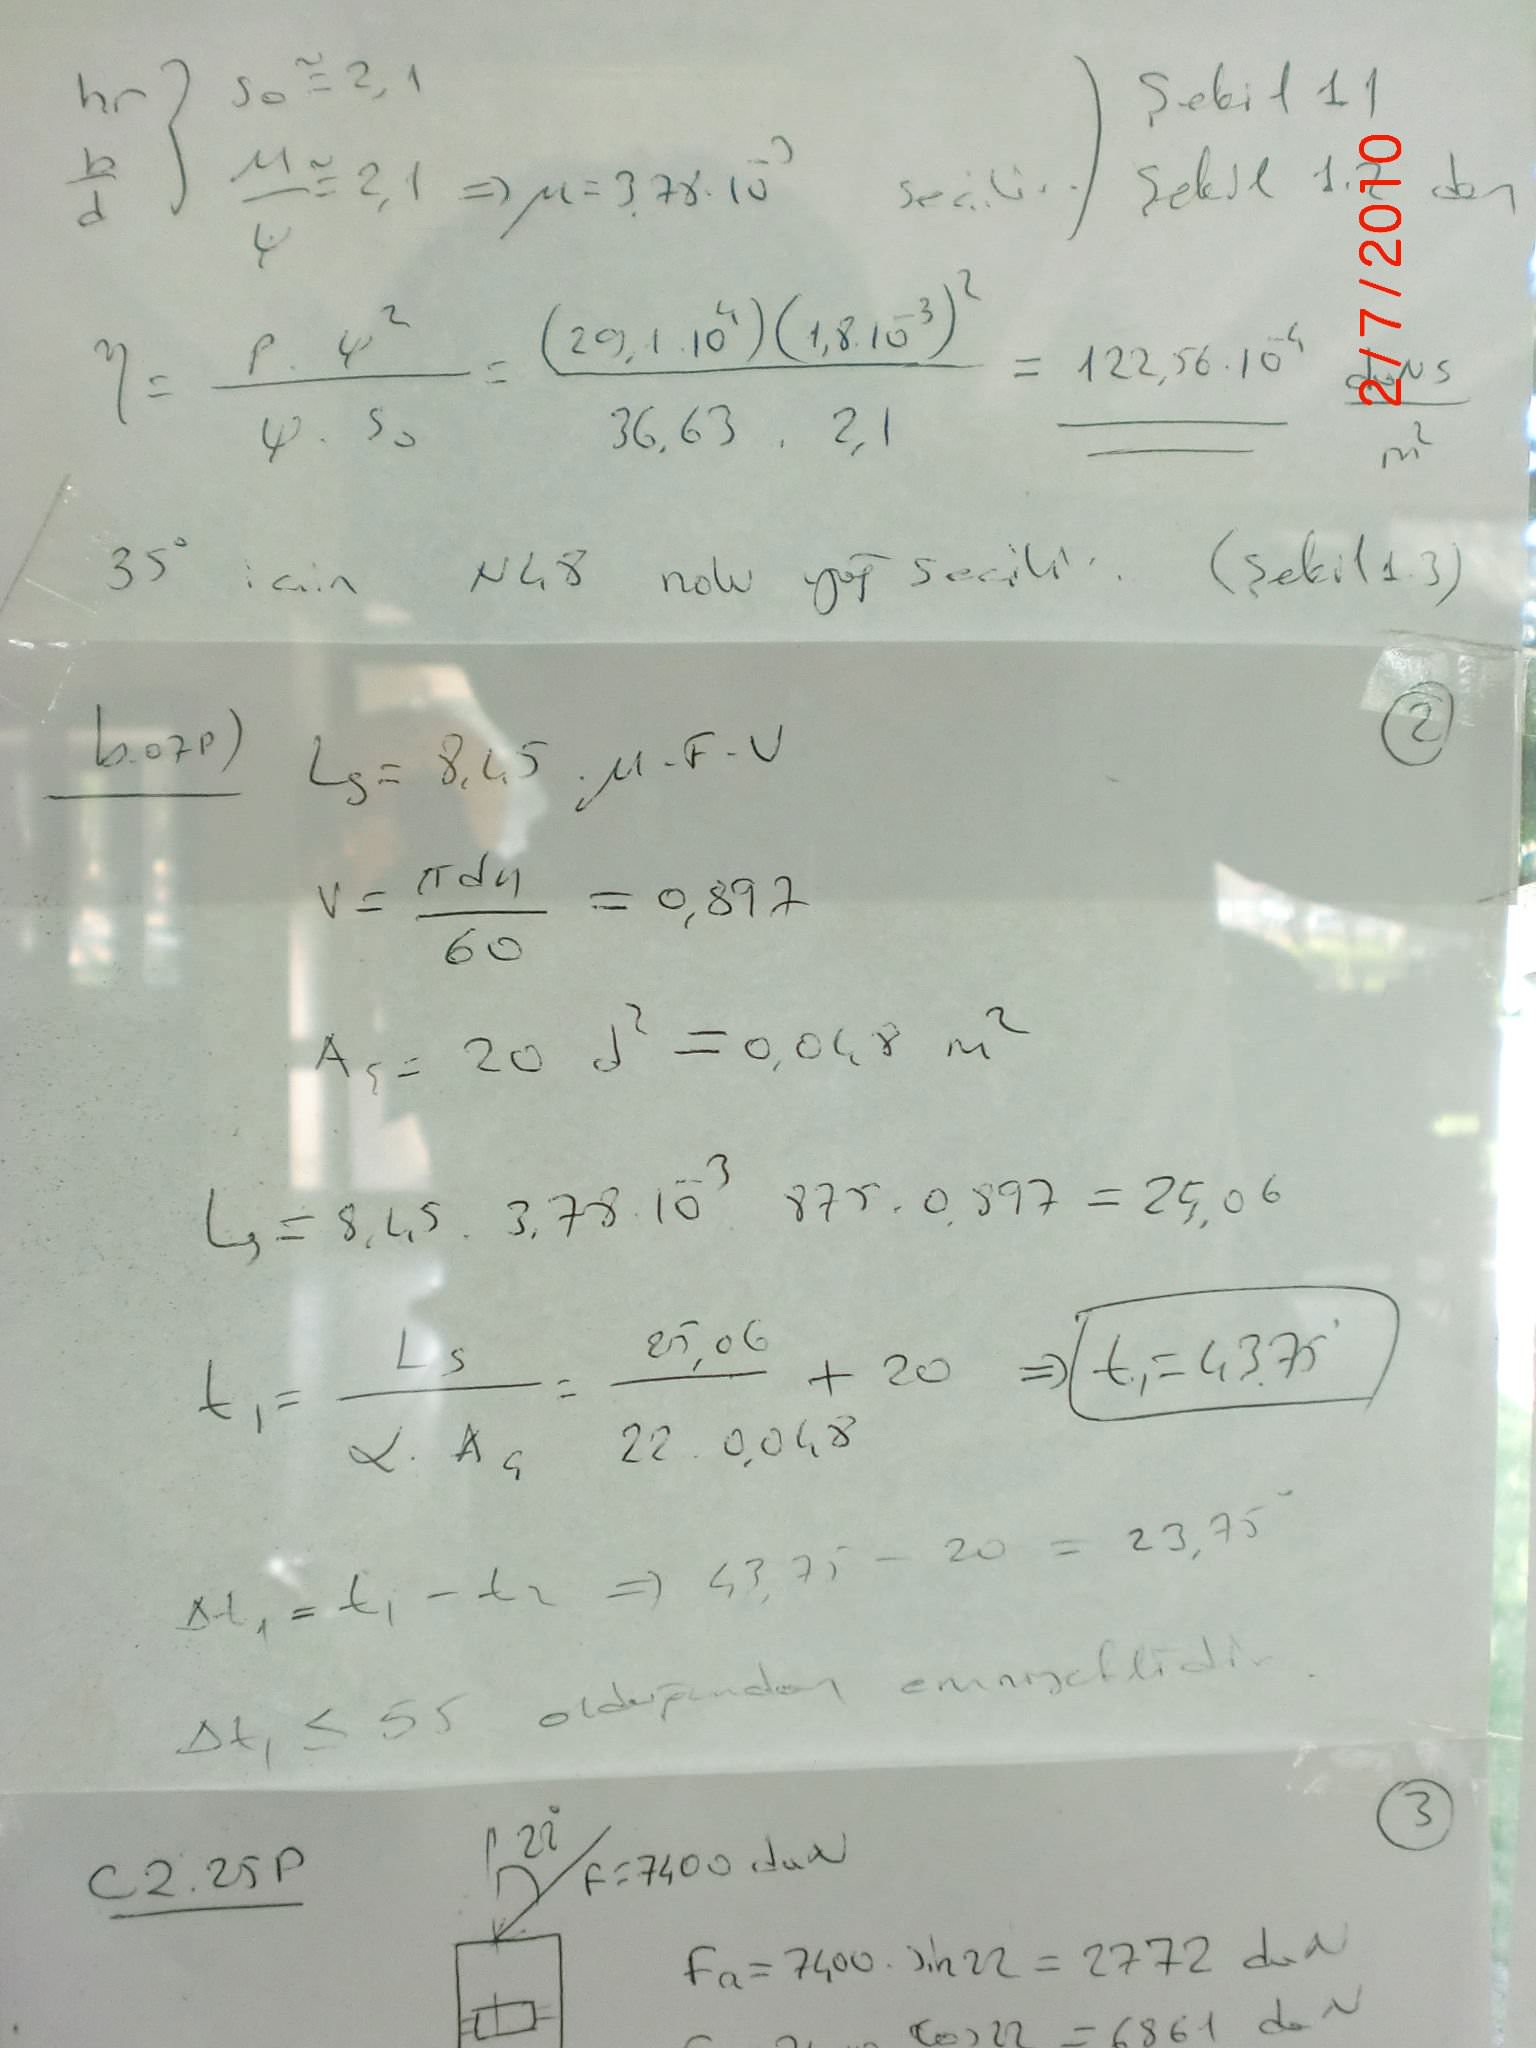 hr } s₀ ≅ 2,1 ) Şekil 1.1
b/d } μ/ψ ≅ 2,1 ⇒ μ = 3,78.10⁻³ seçilir. ) Şekil 1.2 den
η = p.ψ² / ψ.s₀ = (29,1.10⁴)(1,8.10⁻³)² / 36,63 . 2,1 = 122,56.10⁻⁴ daNs/m²
35° için N48 nolu yağ seçilir. (Şekil 1.3)
2/7/2010
b.07P) Ls = 8,45 . μ.F.V
2
V = πdn / 60 = 0,897
As = 20 d² = 0,048 m²
Ls = 8,45 . 3,78.10⁻³ 875 . 0,897 = 25,06
t₁ = Ls / α.As = 25,06 / 22.0,048 + 20 ⇒ t₁ = 43.75°
Δt₁ = t₁ - t₂ ⇒ 43,75 - 20 = 23,75°
Δt₁ ≤ 55 olduğundan emniyetlidir.
3
C2.25P
22°
F = 7400 daN
Fa = 7400. sin22 = 2772 daN
cos22 = 6861 daN